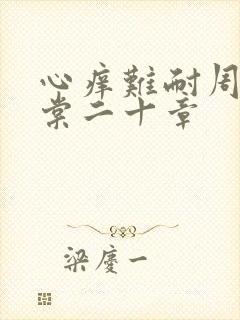 心痒難耐周
棠二十章
梁慶一